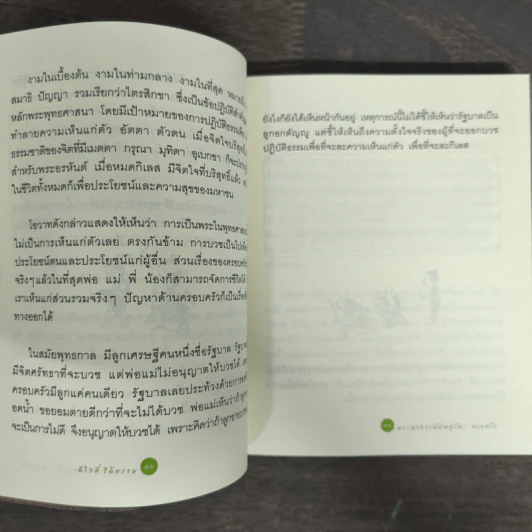 งามในเบื้องต้น งามในท่ามกลาง งามในที่สุด
สมาธิ ปัญญา รวมเรียกว่าไตรสิกขา ซึ่งเป็นข้อปฏิบัติสำคัญ
หลักพระพุทธศาสนา โดยมีเป้าหมายของการปฏิบัติธรรมเพื่อ
ทำลายความเห็นแก่ตัว อัตตา ตัวตน เมื่อจิตใจบริสุทธิ์
ธรรมชาติของจิตที่มีเมตตา กรุณา มุทิตา อุเบกขา ก็จะ
สำหรับพระอรหันต์ เมื่อหมดกิเลส มีจิตใจที่บริสุทธิ์แล้ว
ในชีวิตทั้งหมดก็เพื่อประโยชน์และความสุขของมหาชน
โอวาทดังกล่าวแสดงให้เห็นว่า การเป็นพระในพุทธศาสนา
ไม่เป็นการเห็นแก่ตัวเลย ตรงกันข้าม การบวชเป็นไปเพื่อ
ประโยชน์ตนและประโยชน์แก่ผู้อื่น ส่วนเรื่องของครอบครัว
จริงๆ แล้วในที่สุดพ่อ แม่ พี่ น้องก็สามารถจัดการชีวิตได้
เราเห็นแก่ส่วนรวมจริงๆ ปัญหาด้านครอบครัวก็เป็นเรื่อง
ทางออกได้
ในสมัยพุทธกาล มีลูกเศรษฐีคนหนึ่งชื่อรัฐบาล
มีจิตศรัทธาที่จะบวช แต่พ่อแม่ไม่อนุญาตให้บวชได้
ครอบครัวมีลูกแค่คนเดียว รัฐบาลเลยประท้วงด้วยการ
อดน้ำ ขอยอมตายดีกว่าที่จะไม่ได้บวช พ่อแม่เห็นว่าถ้าลูก
จะเป็นการไม่ดี จึงอนุญาตให้บวชได้ เพราะคิดว่าถ้าลูก
ยังไงก็ยังได้เห็นหน้ากันอยู่ เหตุการณ์นี้ไม่ได้ชี้ให้เห็นว่ารัฐบาลเป็น
ลูกอกตัญญู แต่ชี้ให้เห็นถึงความตั้งใจจริงของผู้ที่จะออกบวช
ปฏิบัติธรรมเพื่อที่จะละความเห็นแก่ตัว เพื่อที่จะละกิเลส